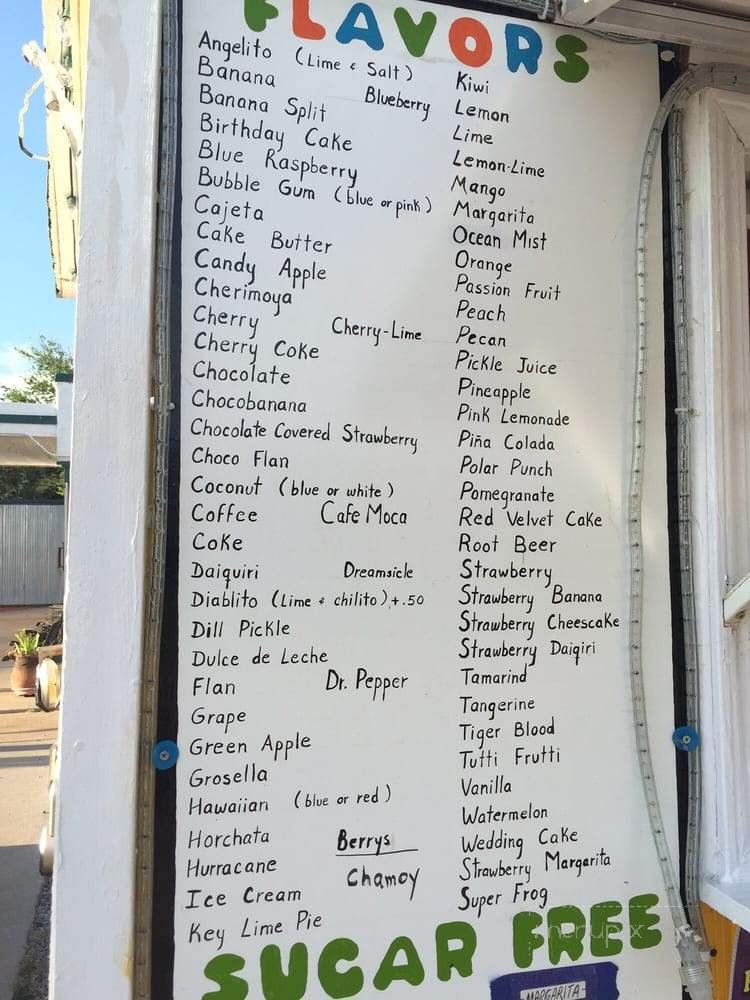 FLAVORS
Angelito (Lime & Salt)
Banana
Blueberry
Banana Split
Birthday Cake
Blue Raspberry
Bubble Gum (blue or pink)
Cajeta
Cake Butter
Candy Apple
Cherimoya
Cherry
Cherry-Lime
Cherry Coke
Chocolate
Chocobanana
Chocolate Covered Strawberry
Choco Flan
Coconut (blue or white)
Coffee
Cafe Moca
Coke
Daiquiri
Dreamsicle
Diablito (Lime & chilito) +.50
Dill Pickle
Dulce de Leche
Flan
Dr. Pepper
Grape
Green Apple
Grosella
Hawaiian (blue or red)
Horchata
Berrys
Hurracane
Chamoy
Ice Cream
Key Lime Pie
Kiwi
Lemon
Lime
Lemon-Lime
Mango
Margarita
Ocean Mist
Orange
Passion Fruit
Peach
Pecan
Pickle Juice
Pineapple
Pink Lemonade
Piña Colada
Polar Punch
Pomegranate
Red Velvet Cake
Root Beer
Strawberry
Strawberry Banana
Strawberry Cheescake
Strawberry Daiqiri
Tamarind
Tangerine
Tiger Blood
Tutti Frutti
Vanilla
Watermelon
Wedding Cake
Strawberry Margarita
Super Frog
SUGAR FREE
menupix
-MARGARITA-